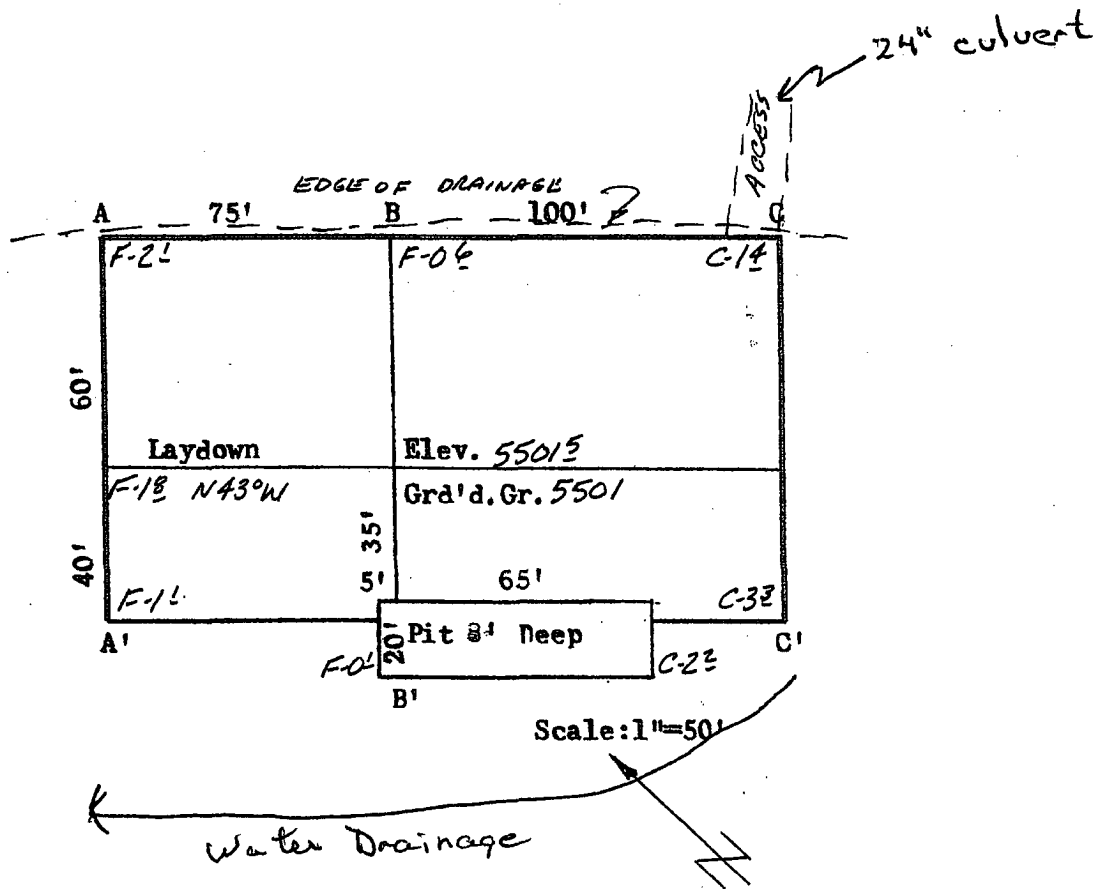 24" culvert
ACCESS
EDGE OF DRAINAGE
A 75' B 100' C
F-2¹ F-0⁶ C-1⁴
60'
Laydown Elev. 5501⁵
F-1⁸ N43°W Grd'd.Gr. 5501
35'
40'
5' 65'
F-1¹ C-3³
A' Pit 8' Deep C'
20'
F-0¹ C-2²
B'
Scale:1"=50'
Water Drainage